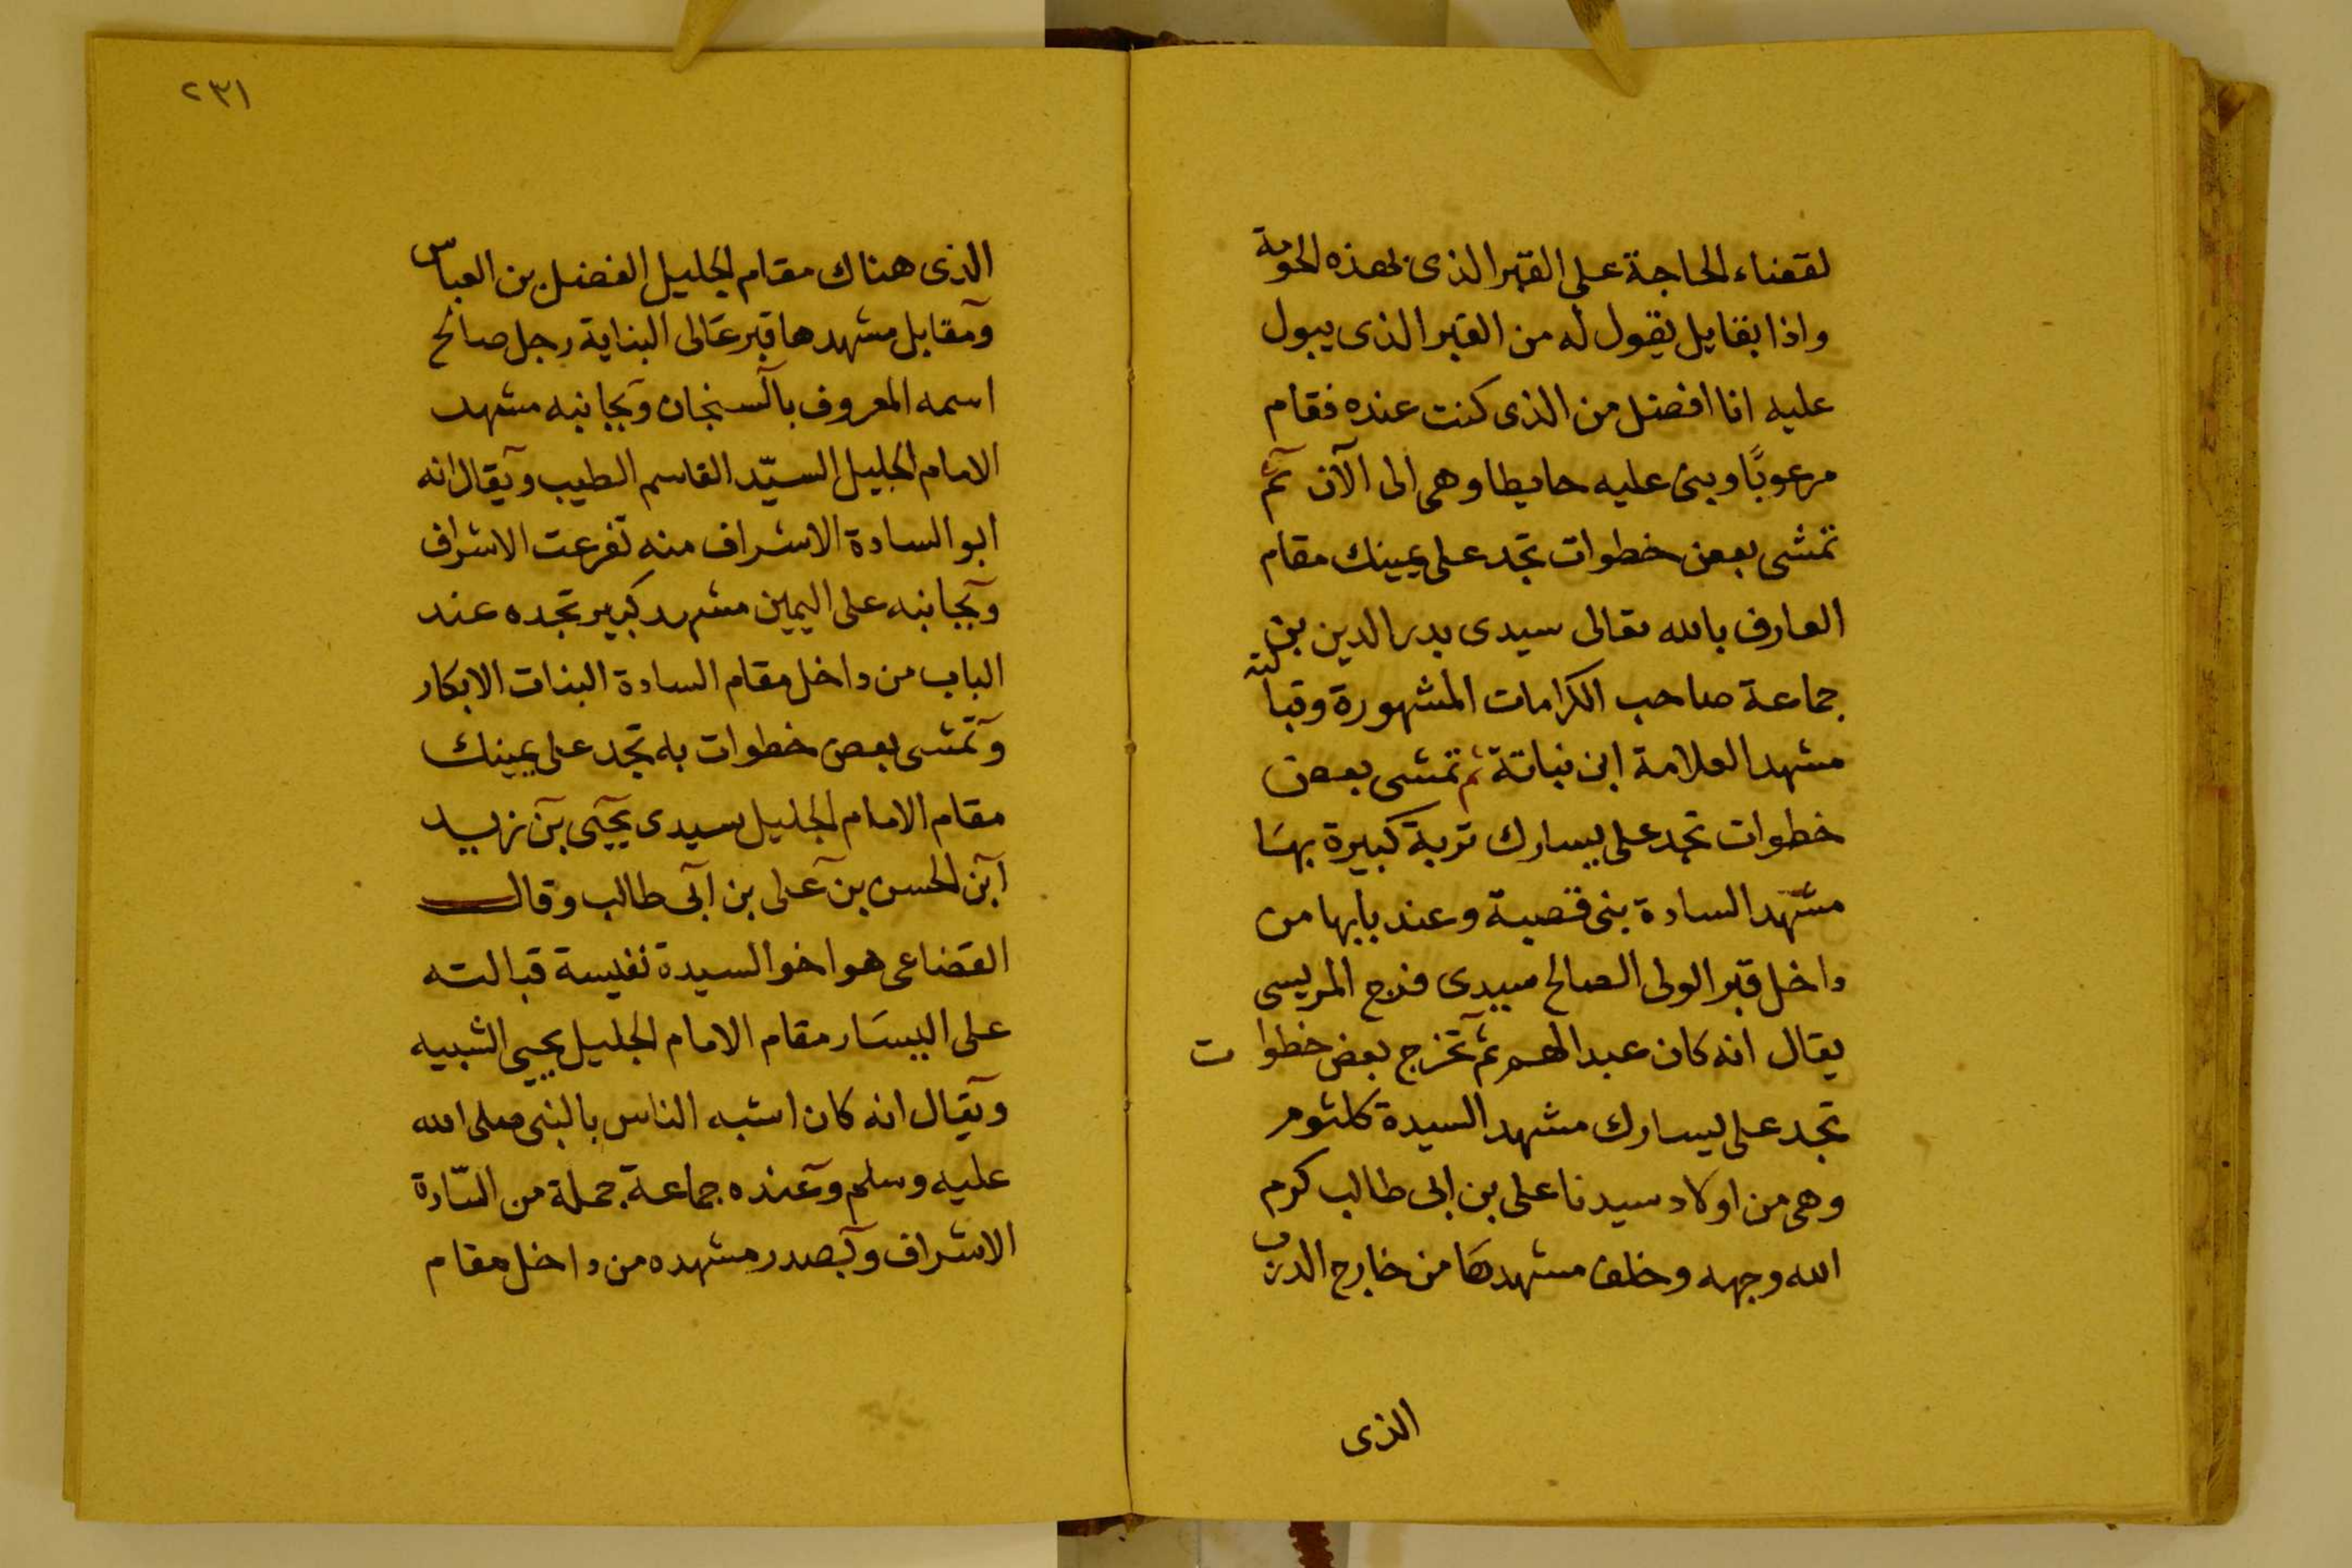 لقضاء الحاجة على القبر الذى بهذه الحومة
واذا بقايل يقول له من القبر الذى يبول
عليه انا افضل من الذى كنت عنده فقام
مرعوبًا وبنى عليه حايطا وهى الى الآن ثم
تمشى بعض خطوات تجد على يمينك مقام
العارف بالله تعالى سيدى بدر الدين بن
جماعة صاحب الكرامات المشهورة وقبالته
مشهد العلامة ابن نباتة ثم تمشى بعض
خطوات تجد على يسارك تربة كبيرة بها
مشهد السادة بنى قصبة وعند بابها من
داخل قبر الولى الصالح سيدى فرج المريسى
يقال انه كان عبد الهم ثم تخرج بعض خطوات
تجد على يسارك مشهد السيدة كلثوم
وهى من اولاد سيدنا على بن ابى طالب كرم
الله وجهه وخلف مشهدها من خارج الدرب
الذى
٢٣١
الذى هناك مقام الجليل الفضل بن العباس
ومقابل مشهدها قبر عالى البناية رجل صالح
اسمه المعروف بالسنجان وبجانبه مشهد
الامام الجليل السيّد القاسم الطيب ويقال انه
ابو السادة الاشراف منه تفرعت الاشراف
وبجانبه على اليمين مشهد كبير تجده عند
الباب من داخل مقام السادة البنات الابكار
وتمشى بعض خطوات به تجد على يمينك
مقام الامام الجليل سيدى يحيى بن زيد
ابن الحسن بن على بن ابى طالب وقال
القضاعى هو اخو السيدة نفيسة قبالته
على اليسار مقام الامام الجليل يحيى الشبيه
ويقال انه كان اشبه الناس بالنبى صلى الله
عليه وسلم وعنده جماعة جملة من السّادة
الاشراف وبصدر مشهده من داخل مقام